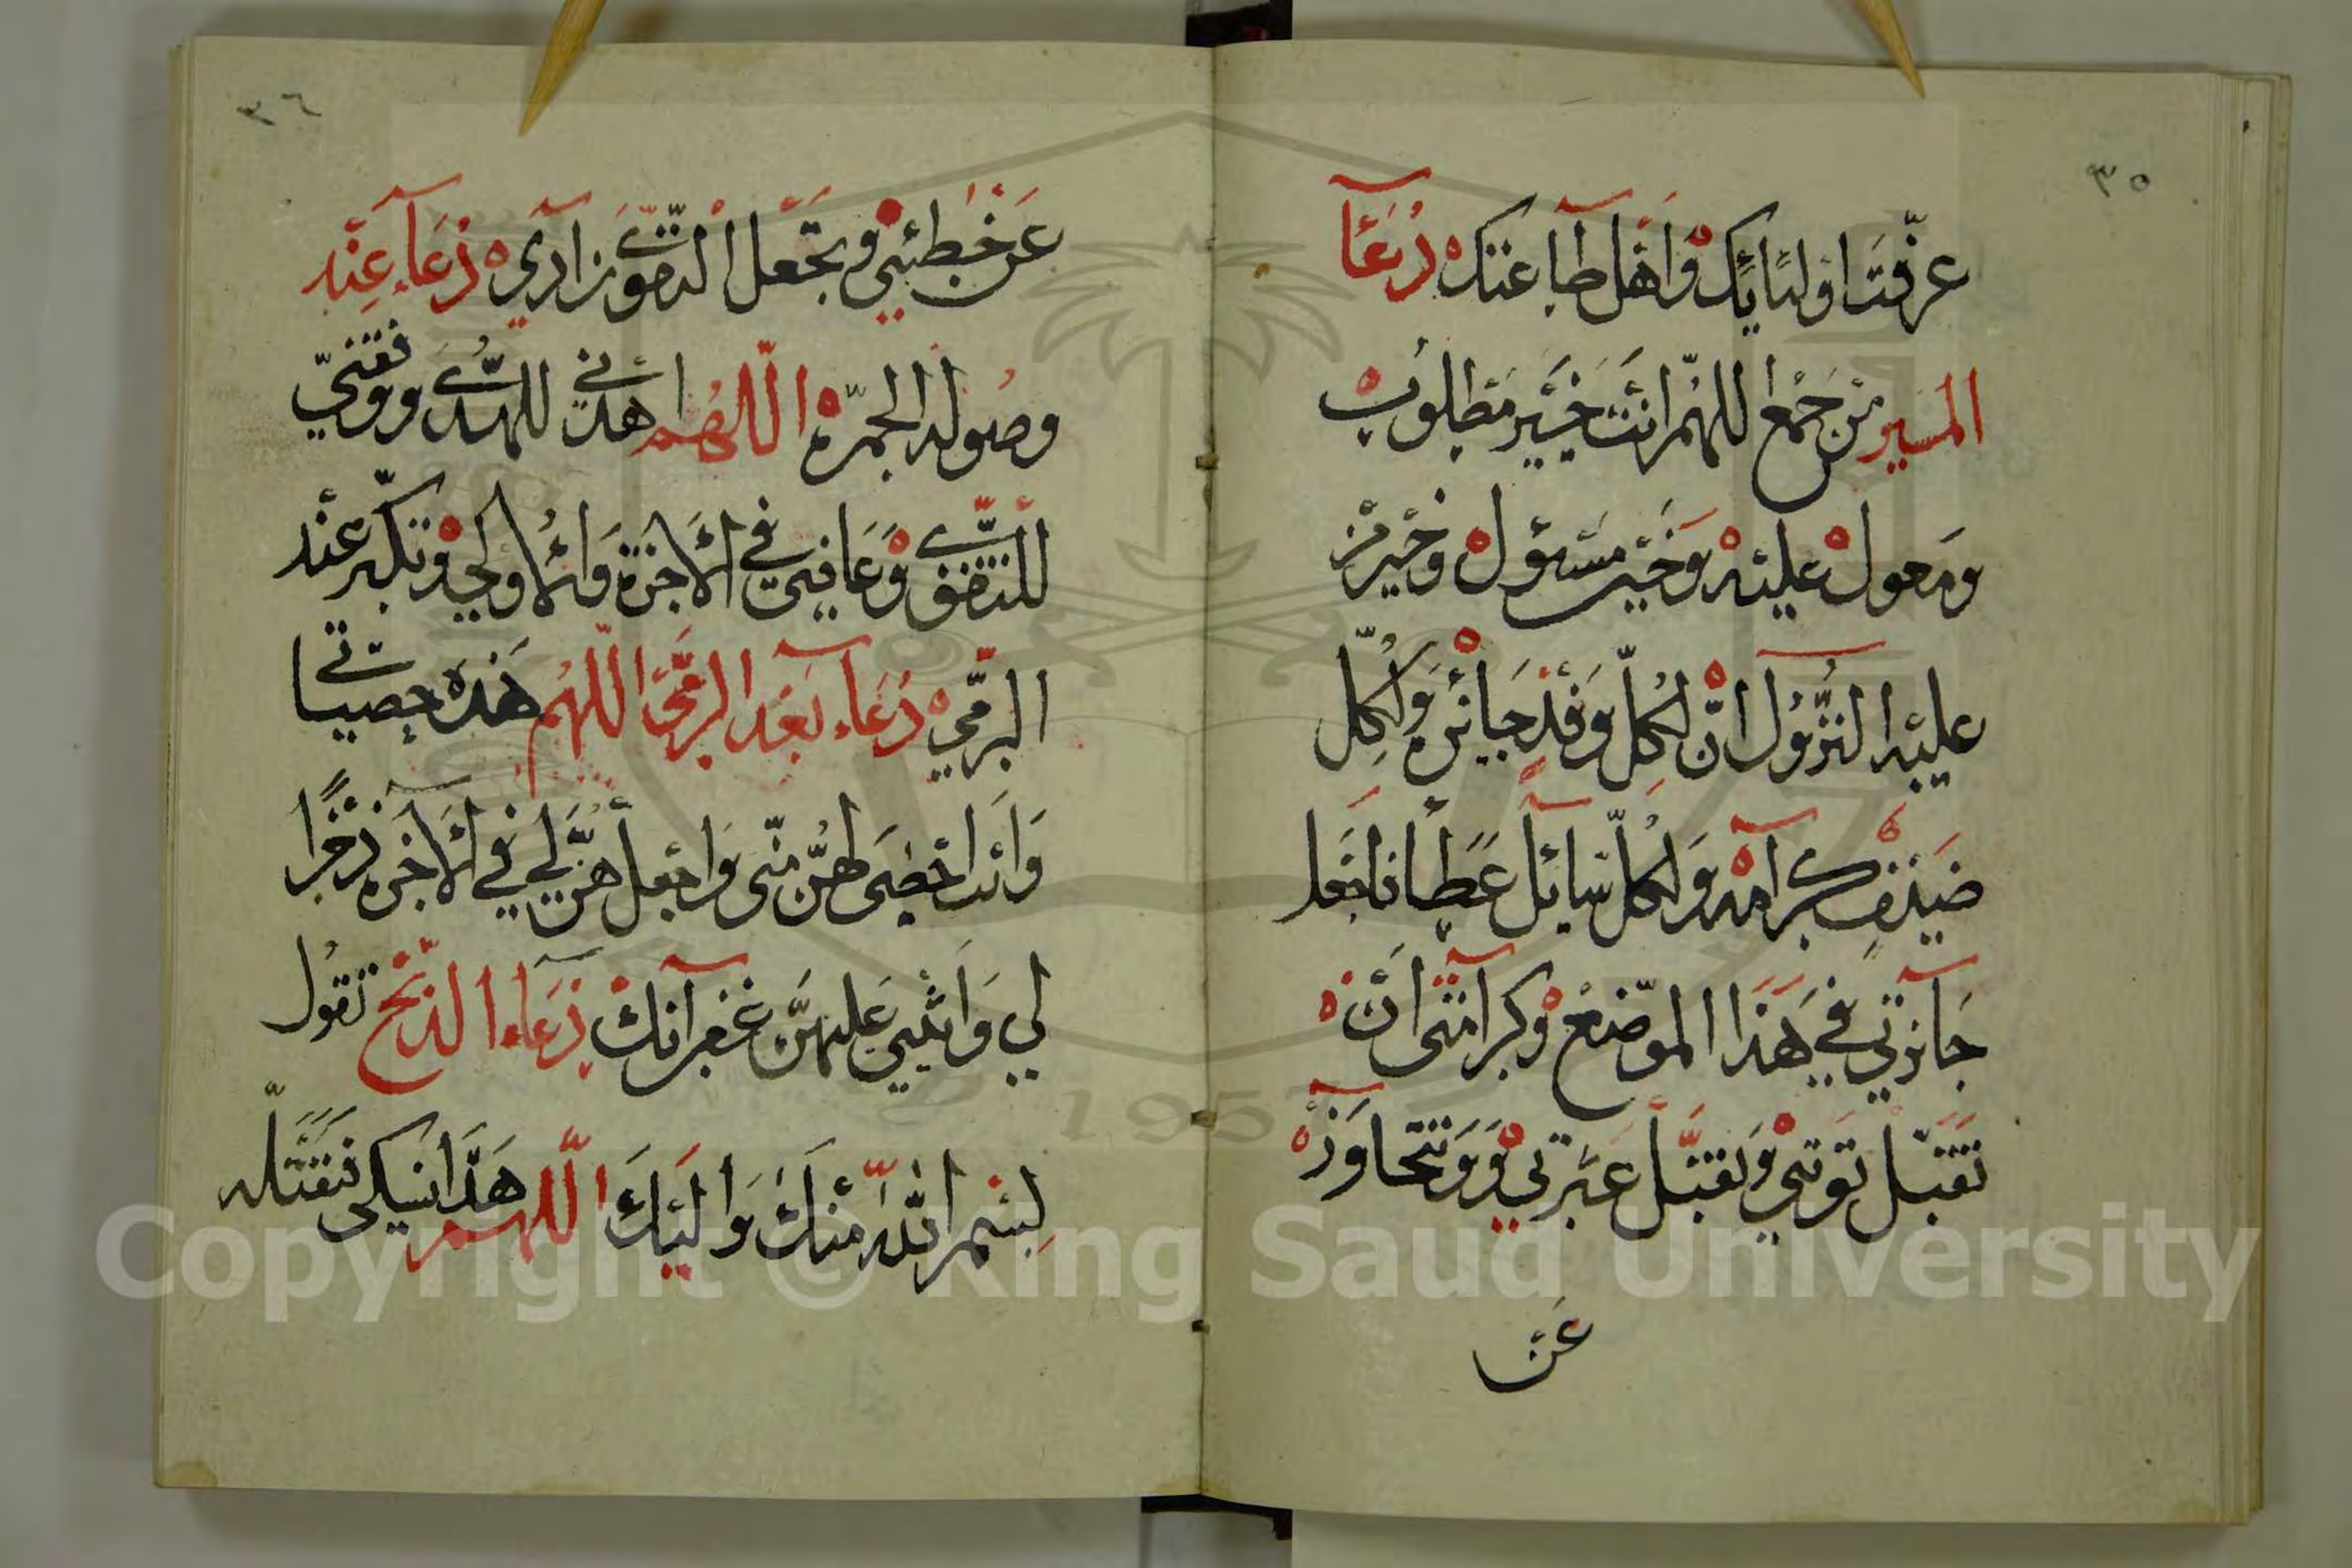 ٣٥
عرّفتَ اوليَائك وَاهْل طاعتك دُعَآ
المَسير من جَمْع اللهُمّ انتَ خَيْر مَطلوب
ومعول عليْه وَخَير مسئول وخير من
عليه النُّزُول انّ لكُلّ وَفْد جَائزه وَلكُل
ضيْف كرامه وَلكُلّ سَائل عَطا فاجْعل
جَآئزتي في هَذا الموْضع وكرامتى انْ
تقبّل توْبتي وَتقبّل عَبْرتي وَ وَتتجاوَز
عَن
٣٦
عَن خَطيئتي وتجْعل التقوى زادي دُعَآء عِنْد
وصوله الجمْرة اللهُم اهدني للهُدى ووفقنيْ
للتقوى وَعَافني في الاٰخرة وَالاُولى وتكبّر عنْد
الرّمي دُعَاء بَعْد الرمْي اللهُم هَذه حصياتي
وَانت احْصَى لهُنّ منّى وَاجْعلهُنّ لي في الاٰخره ذخْرًا
لي وَاثبني عَليهنّ غفرانك دُعَاء الذبْح تقول
بِسْم اللّٰه منْك وَاليْكَ اللهم هَذا نسكى فتقَبّله